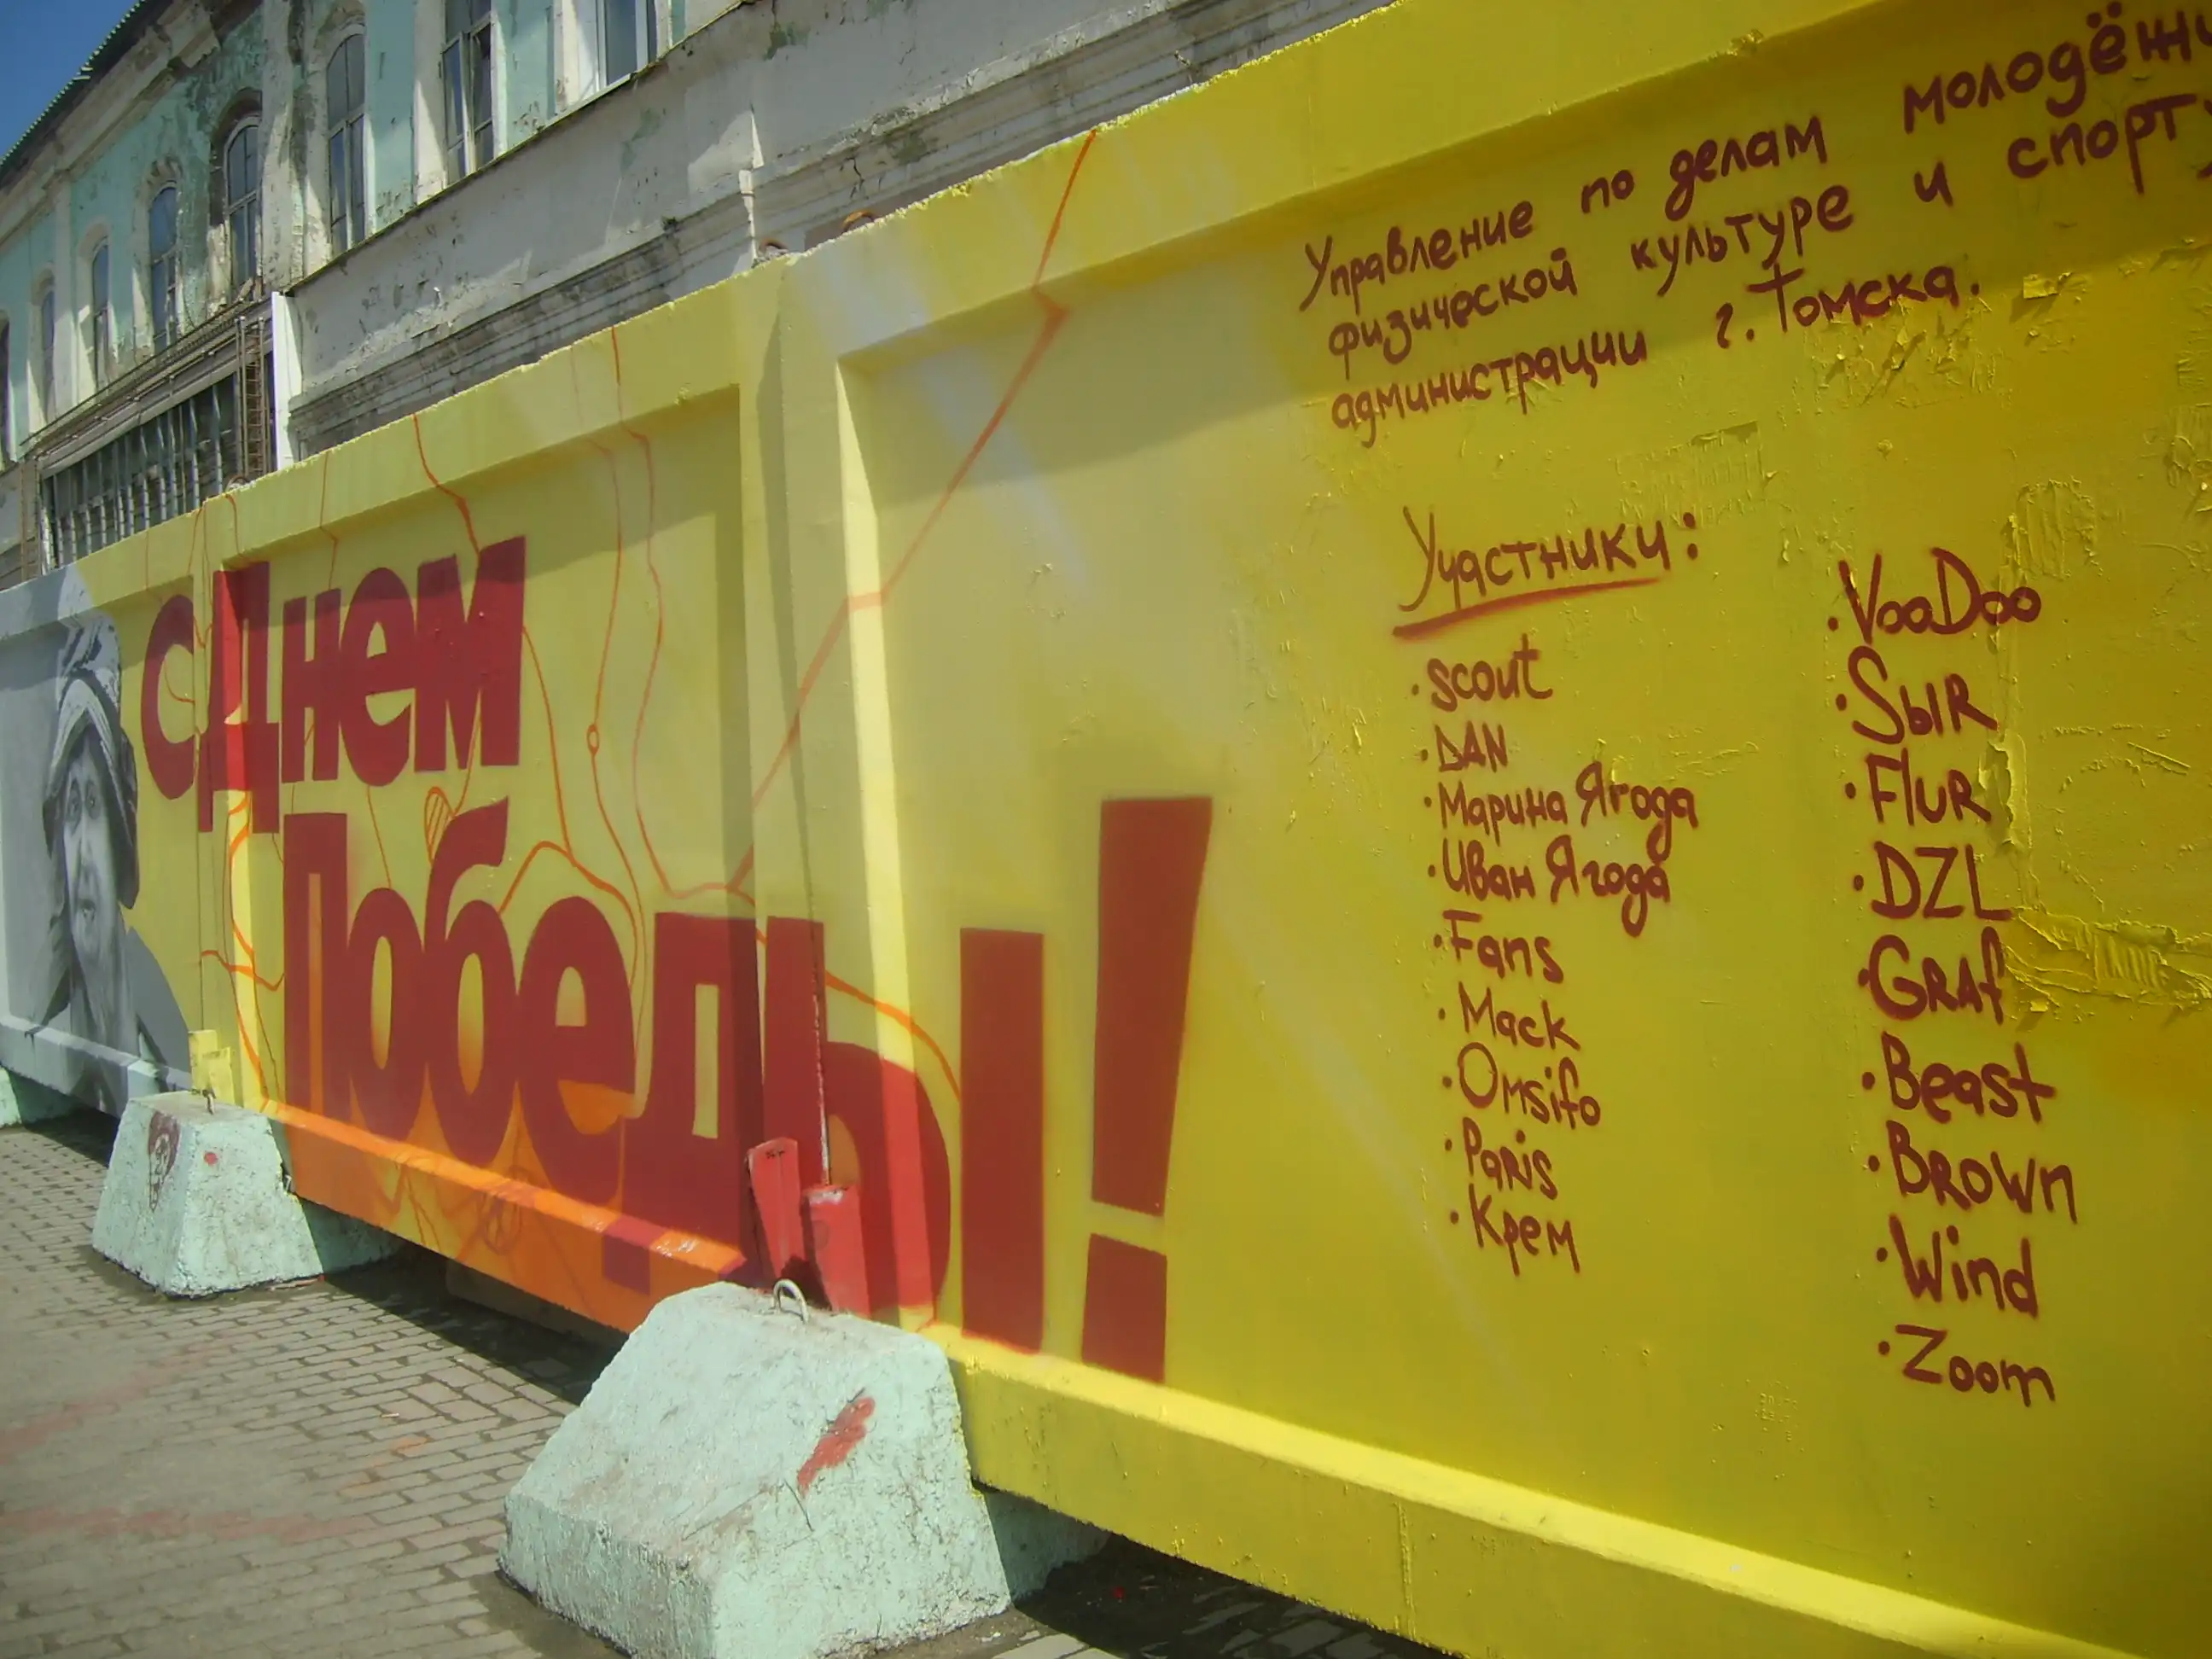 с Днем
Победы!
Управление по делам молодёжи
физической культуре и спорту
администрации г. Томска.
Участники:
· scout
· DAN
· Марина Ягода
· Иван Ягода
· Fans
· Mack
· Omsifo
· Paris
· Крем
· VooDoo
· SыR
· FluR
· DZL
· GRAf
· Beast
· BROWn
· Wind
· Zoom